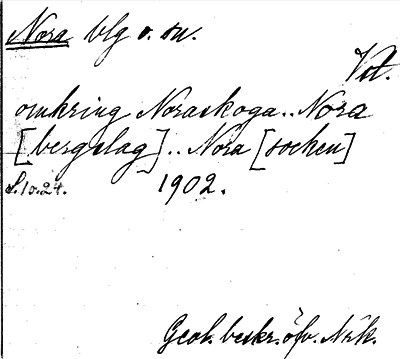 Nora blg o. sn.
Vstl.
omkring Noraskoga.. Nora
[bergslag].. Nora [socken]
S. 10.24. 1902.
Geol. beskr. öfv. Närk.